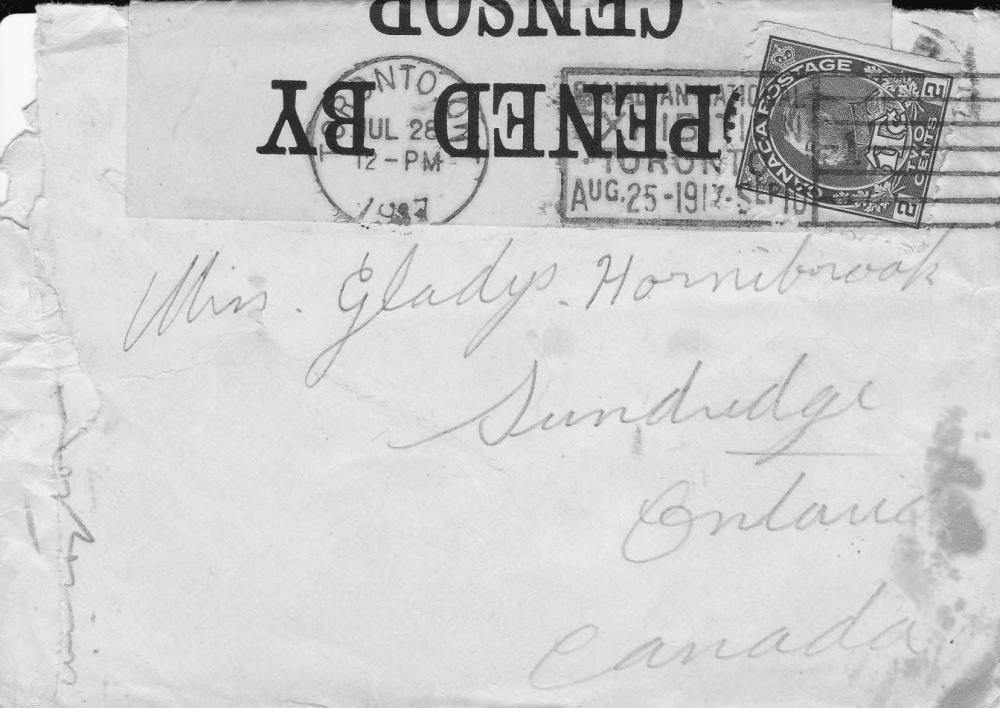 CENSOR
PENED BY
TORONTO, ONT
JUL 28
12-PM
1917
CANADIAN NATIONAL
EXHIBITION
TORONTO
AUG. 25-1917-SEP 10
CANADA POSTAGE
2 TWO CENTS 2
Miss. Gladys. Hornibrook
Sundridge
Ontario
Canada